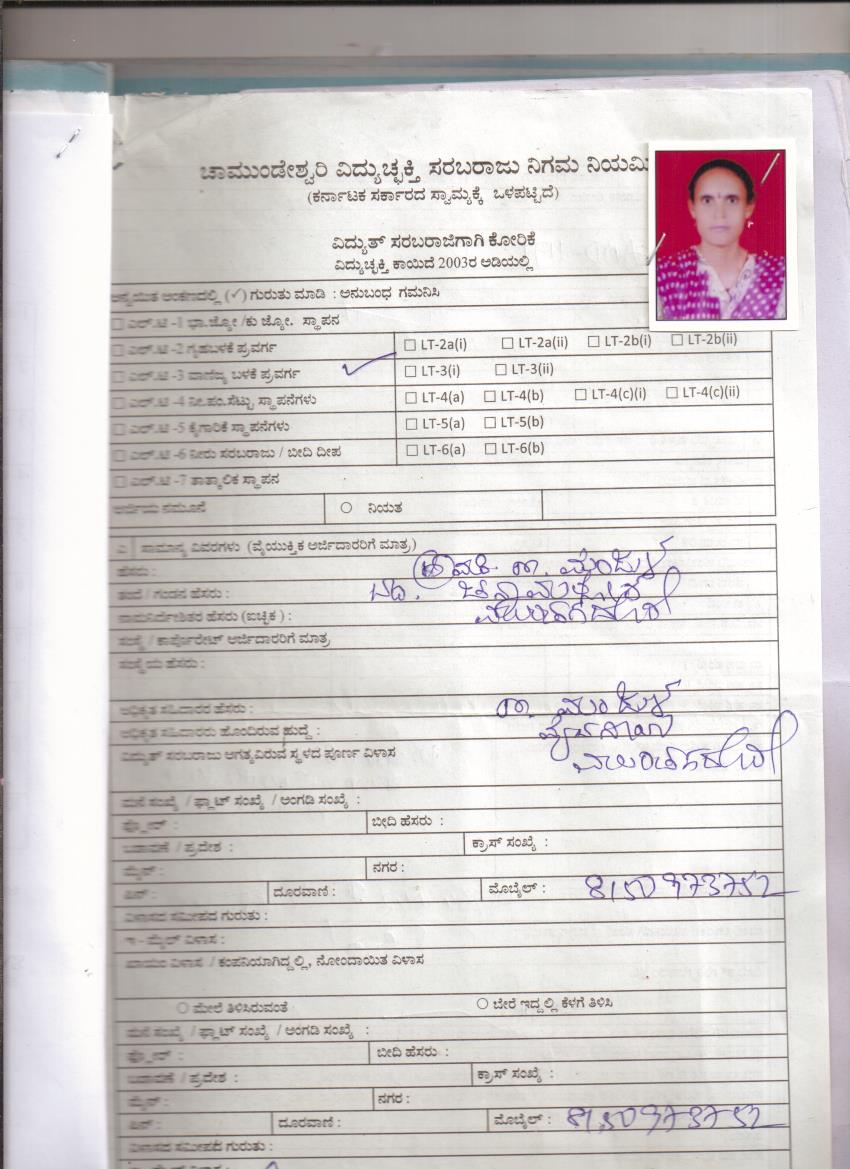 ಚಾಮುಂಡೇಶ್ವರಿ ವಿದ್ಯುಚ್ಛಕ್ತಿ ಸರಬರಾಜು ನಿಗಮ ನಿಯಮಿ
(ಕರ್ನಾಟಕ ಸರ್ಕಾರದ ಸ್ವಾಮ್ಯಕ್ಕೆ ಒಳಪಟ್ಟಿದೆ)
ವಿದ್ಯುತ್ ಸರಬರಾಜಿಗಾಗಿ ಕೋರಿಕೆ
ವಿದ್ಯುಚ್ಛಕ್ತಿ ಕಾಯಿದೆ 2003ರ ಅಡಿಯಲ್ಲಿ
ಅನ್ವಯಿತ ಅಂಕಣದಲ್ಲಿ (✓) ಗುರುತು ಮಾಡಿ : ಅನುಬಂಧ ಗಮನಿಸಿ
☐ ಎಲ್.ಟಿ -1 ಭಾ.ಜ್ಯೋ /ಕು ಜ್ಯೋ. ಸ್ಥಾಪನ
☐ ಎಲ್.ಟಿ -2 ಗೃಹಬಳಕೆ ಪ್ರವರ್ಗ ☐ LT-2a(i) ☐ LT-2a(ii) ☐ LT-2b(i) ☐ LT-2b(ii)
☐ ಎಲ್.ಟಿ -3 ವಾಣಿಜ್ಯ ಬಳಕೆ ಪ್ರವರ್ಗ ✓ ☐ LT-3(i) ☐ LT-3(ii)
☐ ಎಲ್.ಟಿ -4 ನೀ.ಪಂ.ಸೆಟ್ಟು ಸ್ಥಾಪನೆಗಳು ☐ LT-4(a) ☐ LT-4(b) ☐ LT-4(c)(i) ☐ LT-4(c)(ii)
☐ ಎಲ್.ಟಿ -5 ಕೈಗಾರಿಕೆ ಸ್ಥಾಪನೆಗಳು ☐ LT-5(a) ☐ LT-5(b)
☐ ಎಲ್.ಟಿ -6 ನೀರು ಸರಬರಾಜು / ಬೀದಿ ದೀಪ ☐ LT-6(a) ☐ LT-6(b)
☐ ಎಲ್.ಟಿ -7 ತಾತ್ಕಾಲಿಕ ಸ್ಥಾಪನ
ಅರ್ಜಿಯ ನಮೂನೆ ○ ನಿಯತ
ಎ ಸಾಮಾನ್ಯ ವಿವರಗಳು (ವೈಯುಕ್ತಿಕ ಅರ್ಜಿದಾರರಿಗೆ ಮಾತ್ರ)
ಹೆಸರು :
ತಂದೆ / ಗಂಡನ ಹೆಸರು :
ನಾಮನಿರ್ದೇಶಿತರ ಹೆಸರು (ಐಚ್ಛಿಕ) :
ಸಂಸ್ಥೆ / ಕಾರ್ಪೊರೇಟ್ ಅರ್ಜಿದಾರರಿಗೆ ಮಾತ್ರ
ಸಂಸ್ಥೆಯ ಹೆಸರು :
ಅಧಿಕೃತ ಸಹಿದಾರರ ಹೆಸರು :
ಅಧಿಕೃತ ಸಹಿದಾರರು ಹೊಂದಿರುವ ಹುದ್ದೆ :
ವಿದ್ಯುತ್ ಸರಬರಾಜು ಅಗತ್ಯವಿರುವ ಸ್ಥಳದ ಪೂರ್ಣ ವಿಳಾಸ
ಮನೆ ಸಂಖ್ಯೆ / ಫ್ಲಾಟ್ ಸಂಖ್ಯೆ / ಅಂಗಡಿ ಸಂಖ್ಯೆ :
ಫ್ಲೋರ್ : ಬೀದಿ ಹೆಸರು :
ಬಡಾವಣೆ / ಪ್ರದೇಶ : ಕ್ರಾಸ್ ಸಂಖ್ಯೆ :
ಮೈನ್ : ನಗರ :
ಪಿನ್ : ದೂರವಾಣಿ : ಮೊಬೈಲ್ : 8150973752
ವಿಳಾಸದ ಸಮೀಪದ ಗುರುತು :
ಇ - ಮೈಲ್ ವಿಳಾಸ :
ಖಾಯಂ ವಿಳಾಸ / ಕಂಪನಿಯಾಗಿದ್ದಲ್ಲಿ, ನೋಂದಾಯಿತ ವಿಳಾಸ
○ ಮೇಲೆ ತಿಳಿಸಿರುವಂತೆ ○ ಬೇರೆ ಇದ್ದಲ್ಲಿ ಕೆಳಗೆ ತಿಳಿಸಿ
ಮನೆ ಸಂಖ್ಯೆ / ಫ್ಲಾಟ್ ಸಂಖ್ಯೆ / ಅಂಗಡಿ ಸಂಖ್ಯೆ :
ಫ್ಲೋರ್ : ಬೀದಿ ಹೆಸರು :
ಬಡಾವಣೆ / ಪ್ರದೇಶ : ಕ್ರಾಸ್ ಸಂಖ್ಯೆ :
ಮೈನ್ : ನಗರ :
ಪಿನ್ : ದೂರವಾಣಿ : ಮೊಬೈಲ್ : 8150973752
ವಿಳಾಸದ ಸಮೀಪದ ಗುರುತು :